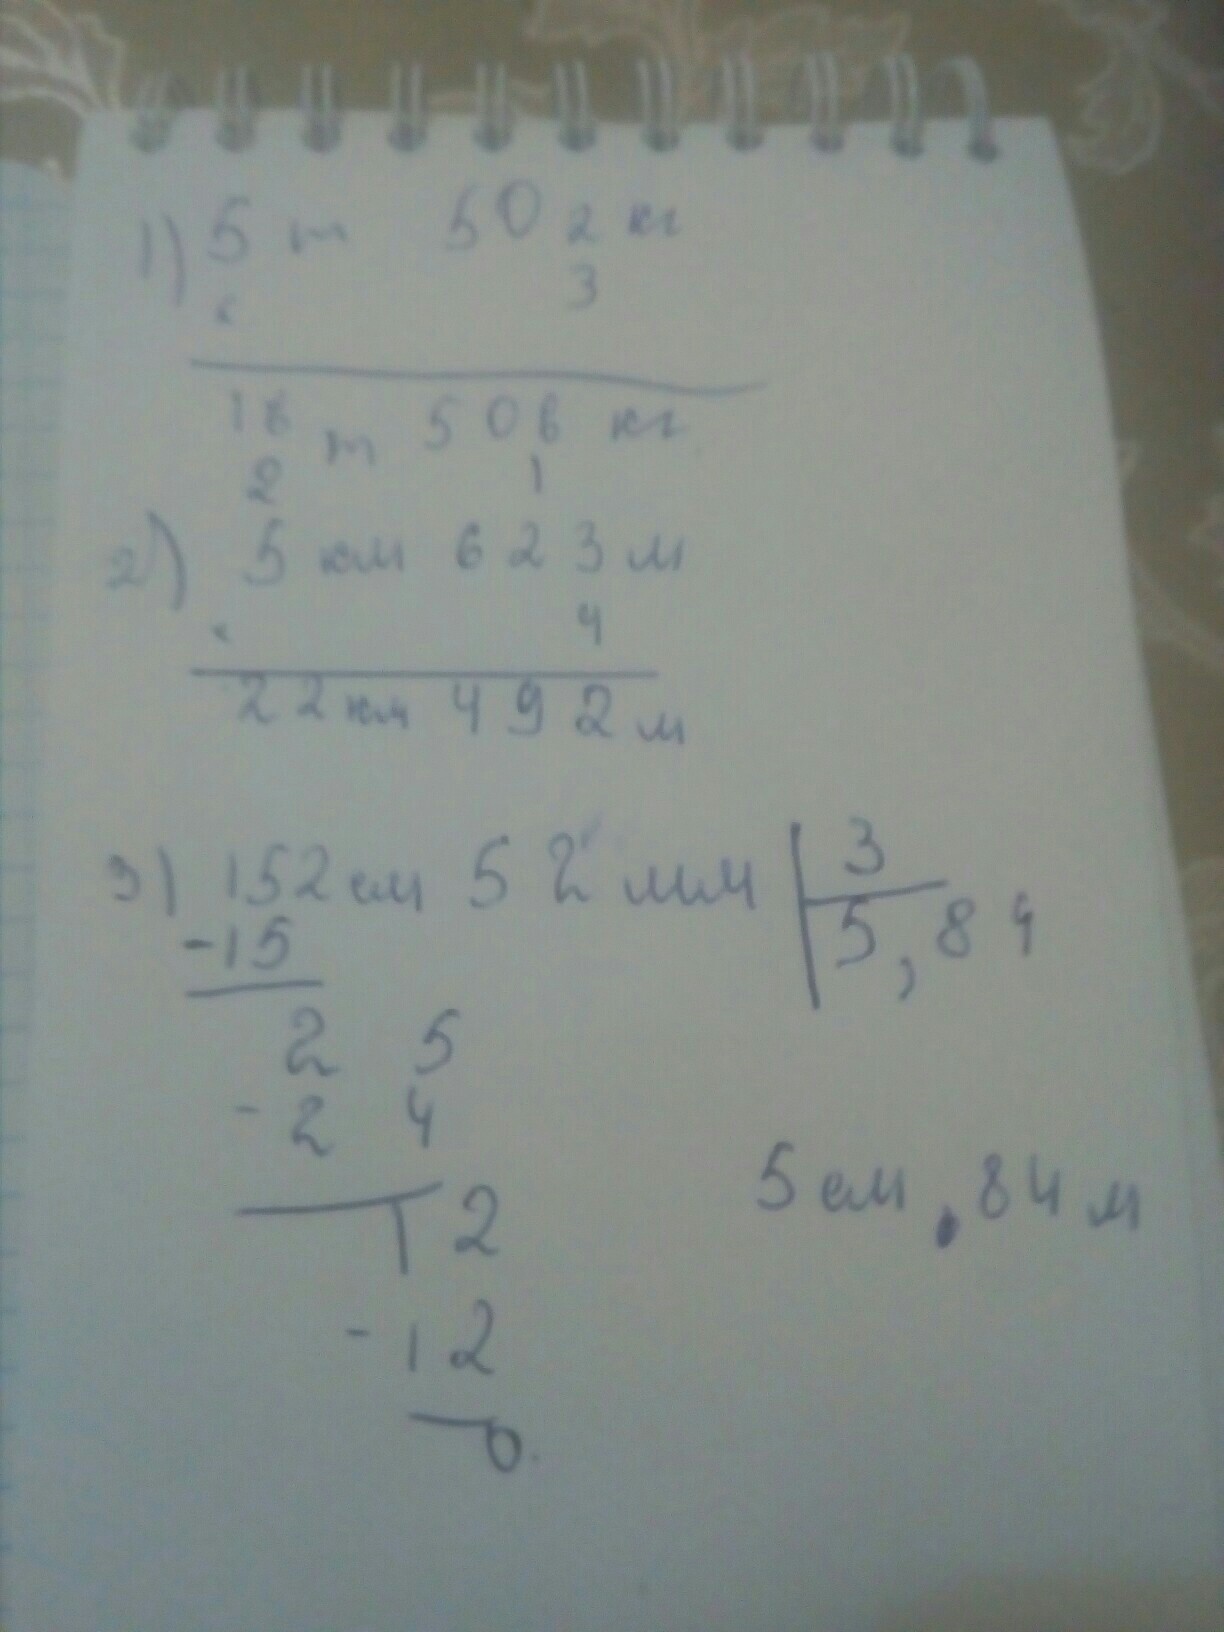 1) 5 т 502 кг
× 3
16 т 506 кг
2 1
2) 5 км 623 м
× 4
22 км 492 м
3) 152 см 52 мм | 3
-15 5,84
2 5
- 2 4
12
5 см, 84 м
- 12
0